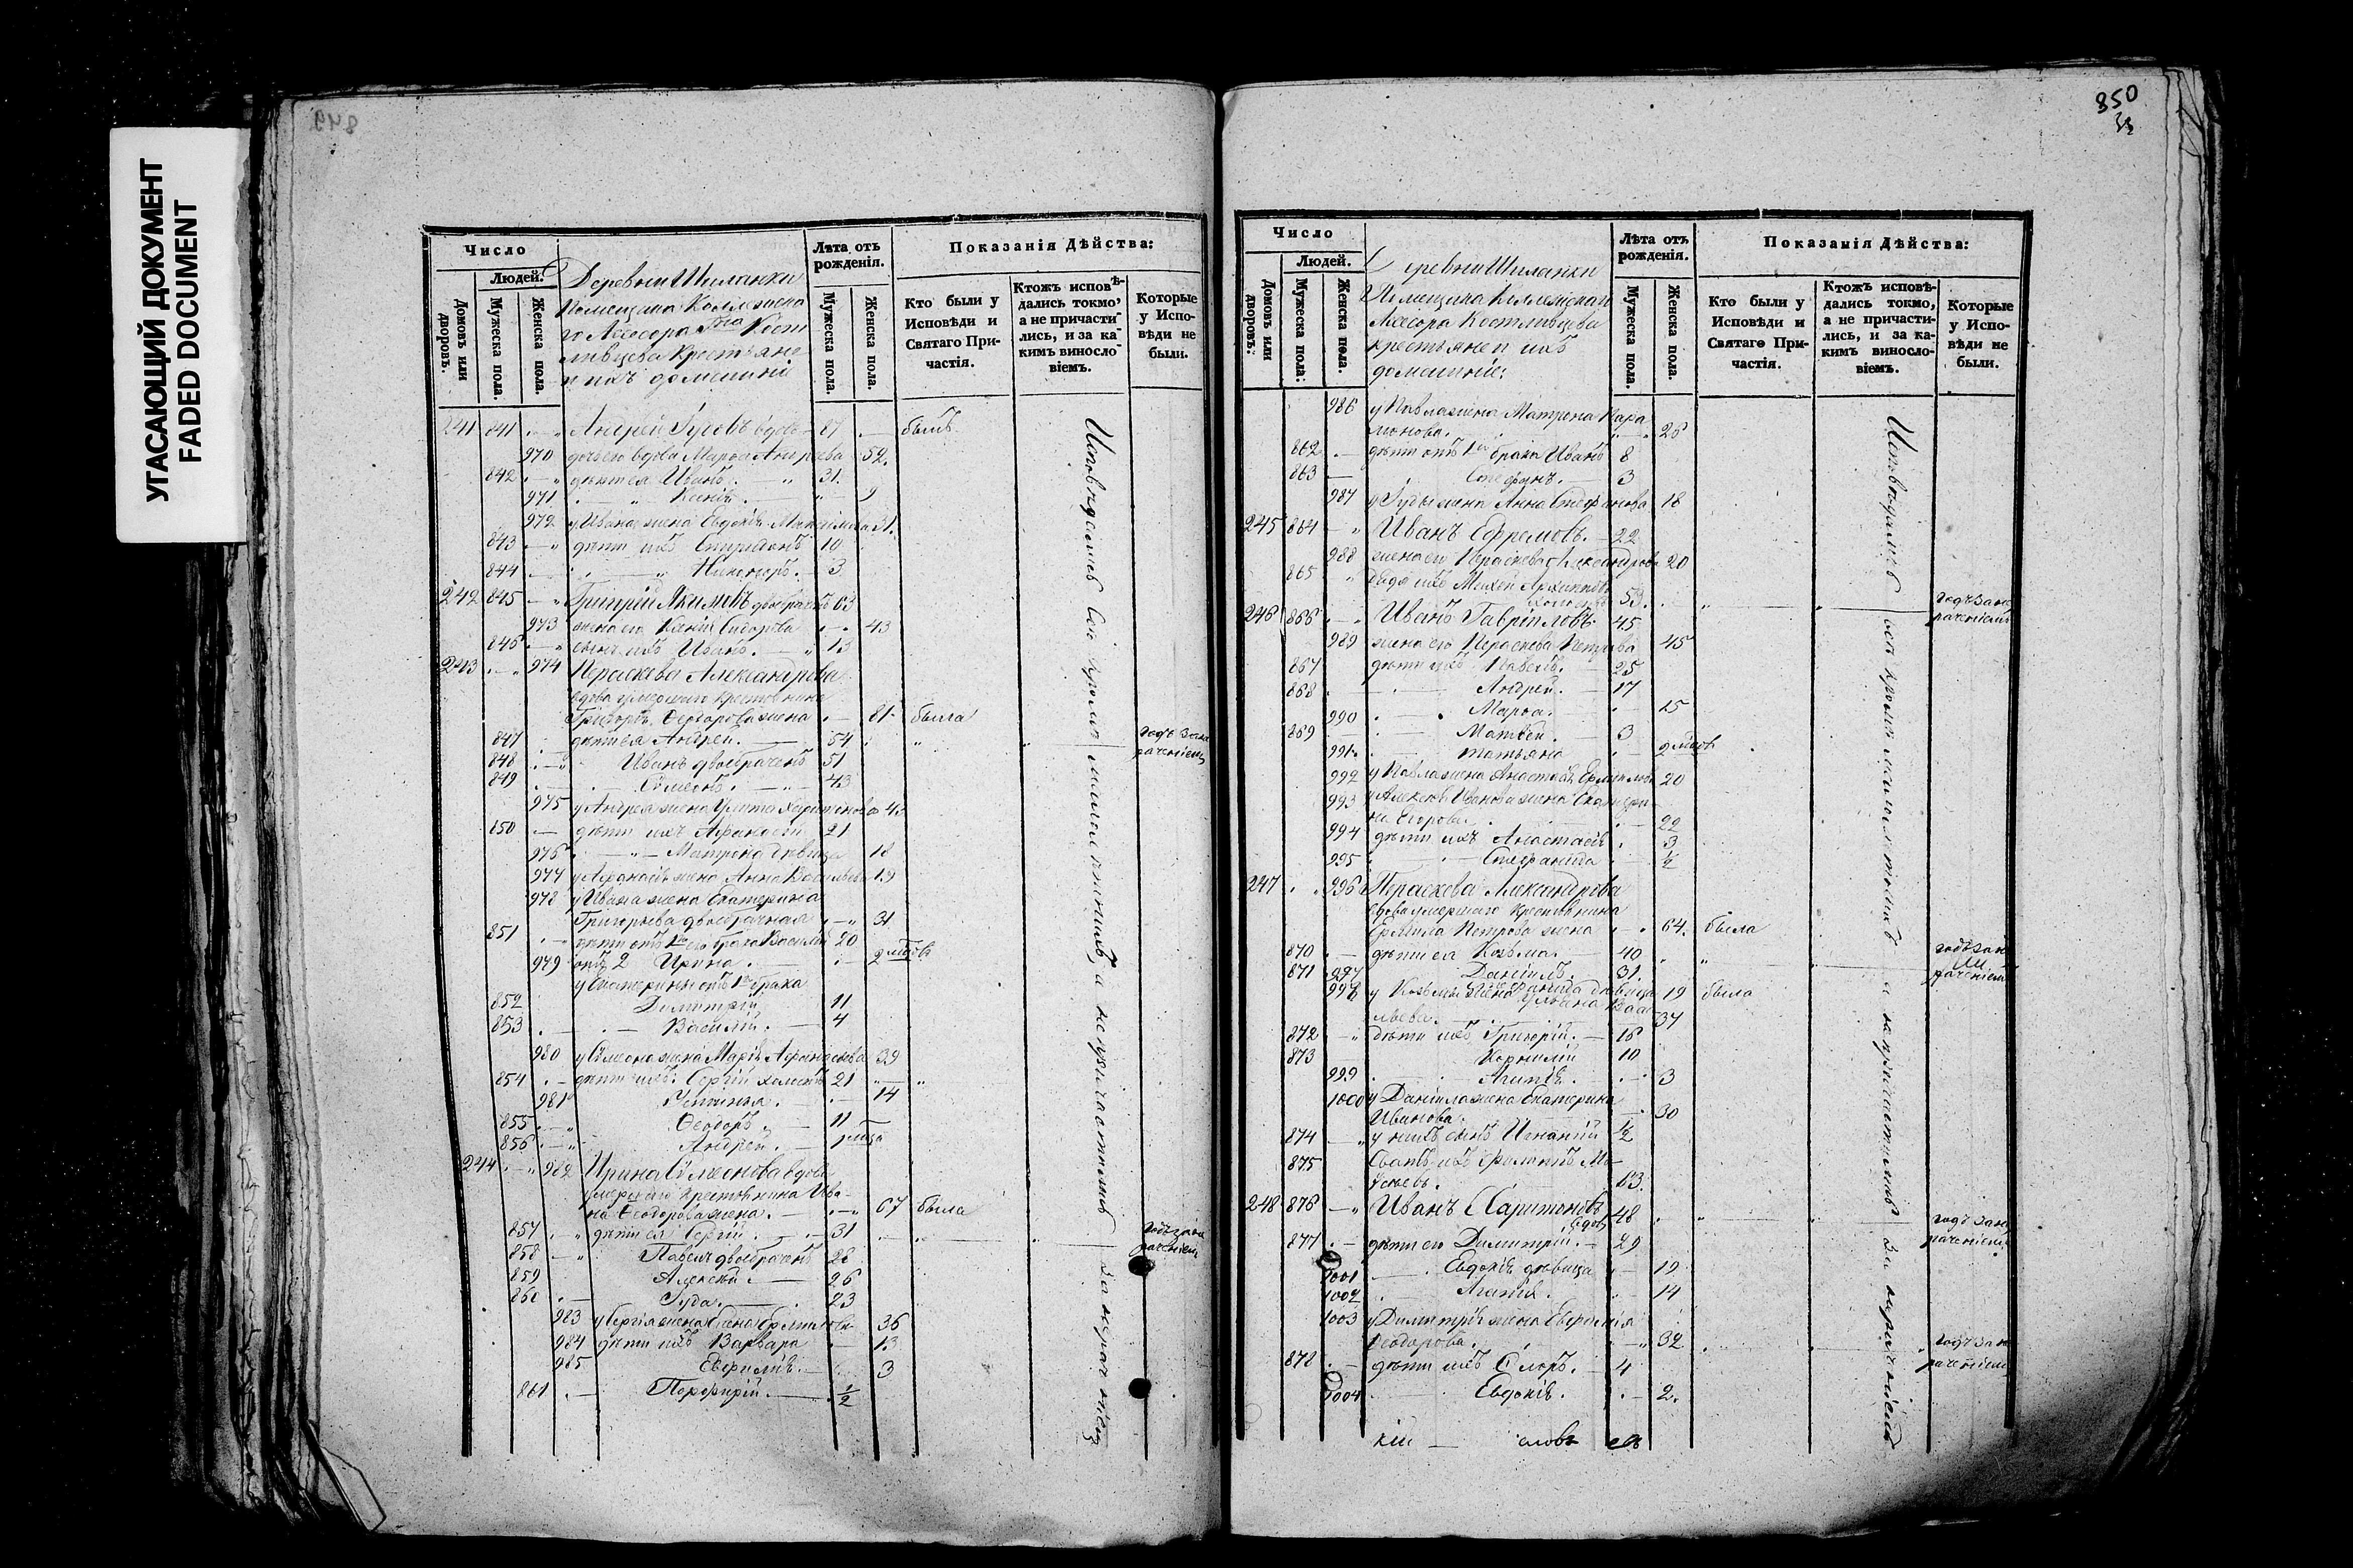 УГАСАЮЩИЙ ДОКУМЕНТ
FADED DOCUMENT
849
Число
Людей.
Домовъ или дворовъ.
Мужеска пола.
Женска пола.
Деревни Шиланки
Помещика Коллежска
го Ассесора Кост
ливцева крестьяне
и ихъ домашніе
Лѣта отъ рожденія.
Мужеска пола.
Женска пола.
Показанія Дѣйства:
Кто были у Исповѣди и Святаго Причастія.
Ктожъ исповѣдались токмо, а не причастились, и за какимъ винословіемъ.
Которые у Исповѣди не были.
241 841 Андрей Гусевъ вдовъ 87 былъ
970 дочь его вдова Марѳа Андреева 52
842 дѣти ея Иванъ 31
971 Ксенія 9
972 у Ивана жена Евдокія Максимова 31
843 дѣти ихъ Спиридонъ 10
844 Никифоръ 3
242 845 Григорій Якимовъ двоебрачный 63
973 жена его Ксенія Сидорова 43
846 сынъ ихъ Иванъ 13
243 974 Пераскева Александрова
вдова умершаго крестьянина
Григорія Ѳеодорова жена 81 была
847 дѣти ея Андрей 54
848 Иванъ двоебраченъ 51
849 Сѵмеонъ 43
975 у Андрея жена Улита Харитонова 43
850 дѣти ихъ Афанасій 21
976 Матрона дѣвица 18
977 у Афанасія жена Анна Васильева 19
978 у Ивана жена Екатерина
Григорьева двоебрачная 31
851 дѣти отъ 1го его брака Василій 20
979 отъ 2 Ирина 2 мѣсяцъ
у Екатерины отъ 1го брака
852 Димитрій 11
853 Василій 4
980 у Сѵмеона жена Марія Афанасьева 39
854 дѣти ихъ Сергій холостъ 21
981 Устинья 14
855 Ѳеодоръ 11
856 Андрей
244 982 Ирина Сѵмеонова вдова
умершаго крестьянина Ива
на Ѳеодорова жена 67 была
857 дѣти ея Сергій 31
858 Павелъ двоебраченъ 28
859 Алексѣй 26
860 Іуда 23
983 у Сергія жена Елена Ермилова 36
984 дѣти ихъ Варвара 13
985 Евфимія 3
861 Порфирій ½
Исповѣдались всѣ кромѣ малолѣтнихъ, а не причастились за нераченіемъ
850
Число
Людей.
Домовъ или дворовъ.
Мужеска пола.
Женска пола.
Деревни Шиланки
Помещика Коллежскаго
Ассесора Костливцева
крестьяне и ихъ
домашніе:
Лѣта отъ рожденія.
Мужеска пола.
Женска пола.
Показанія Дѣйства:
Кто были у Исповѣди и Святаго Причастія.
Ктожъ исповѣдались токмо, а не причастились, и за какимъ винословіемъ.
Которые у Исповѣди не были.
986 у Павла жена Матрена Пара
монова 26
862 дѣти отъ 1го брака Иванъ 8
863 Стефанъ 3
987 у Іуды жена Анна Стефанова 18
245 864 Иванъ Ефремовъ 22
988 жена его Пераскева Александрова 20
865 дядя ихъ Михей Архиповъ
холостъ 53
246 866 Иванъ Гавріиловъ 45
989 жена его Пераскева Петрова 45
867 дѣти ихъ Павелъ 25
868 Андрей 17
990 Марѳа 15
869 Матвей 3
991 Татьяна
992 у Павла жена Анастасія Ермилова 20
993 у Алексѣя Иванова жена Екатери
на Егорова 22
994 дѣти ихъ Анастасія 3
995 Стефанида ½
247 996 Пераскева Александрова
вдова умершаго крестьянина
Ермила Петрова жена 64 была
870 дѣти ея Козьма 40
871 Даніилъ 31
997 Стефанида дѣвица 19 была
998 у Козьмы жена Ульяна Васи
льева 37
872 дѣти ихъ Григорій 16
873 Корнилій 10
999 Агапія 3
1000 у Даніила жена Екатерина
Иванова 30
874 у нихъ сынъ Игнатій ½
875 Сватъ ихъ Филиппъ Мо
исеевъ 63
248 876 Иванъ Харитоновъ
вдовъ 48
877 дѣти его Димитрій 29
1001 Евдокія дѣвица 19
1002 Агапія 14
1003 у Димитрія жена Евгенія
Ѳеодорова 32
878 дѣти ихъ Флоръ 4
1004 Евдокія 2
Исповѣдались всѣ кромѣ малолѣтнихъ а не причастились за нераченіемъ